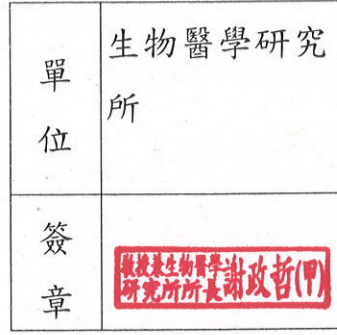 單位
生物醫學研究
所
簽章
教授兼生物醫學
研究所所長
謝政哲(甲)